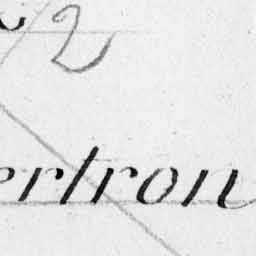 2
ertron